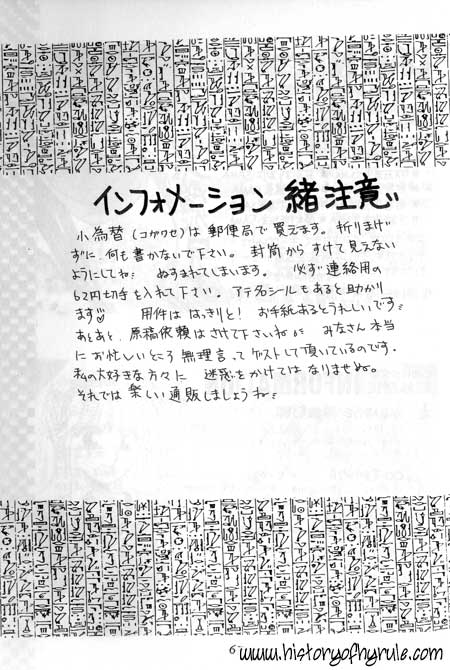 インフォメーション 緒注意
小為替(コガワセ)は郵便局で買えます。折りまげ
ずに、何も書かないで下さい。封筒からすけて見えない
ようにしてね。ぬすまれてしまいます。必ず連絡用の
62円切手を入れて下さい。アテ名シールもあると助かり
ます♡ 用件ははっきりと! お手紙あるとうれしいです
あとあと、原稿依頼はさけて下さいね みなさん本当
にお忙しいところ無理言ってゲストして頂いているのです.
私の大好きな方々に 迷惑をかけてはなりませぬ。
それでは楽しい通販しましょうね
6
www.historyofhyrule.com